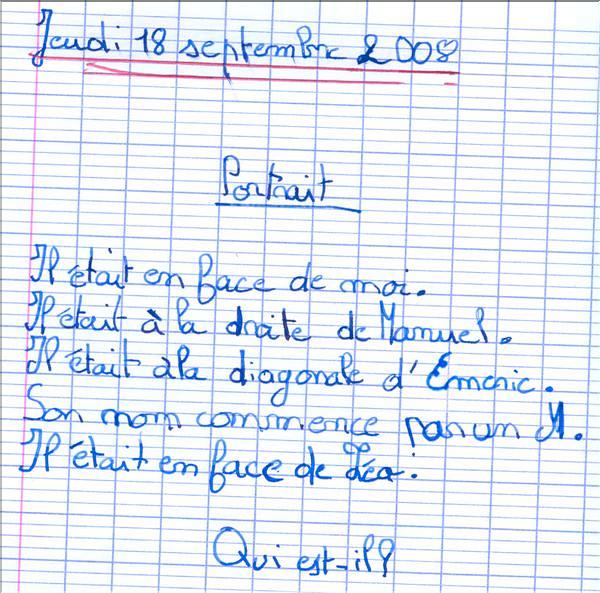 Jeudi 18 septembre 2008
Portrait
Il était en face de moi.
Il était à la droite de Manuel.
Il était à la diagonale d'Émeric.
Son nom commence par un M.
Il était en face de Léa.
Qui est-il?